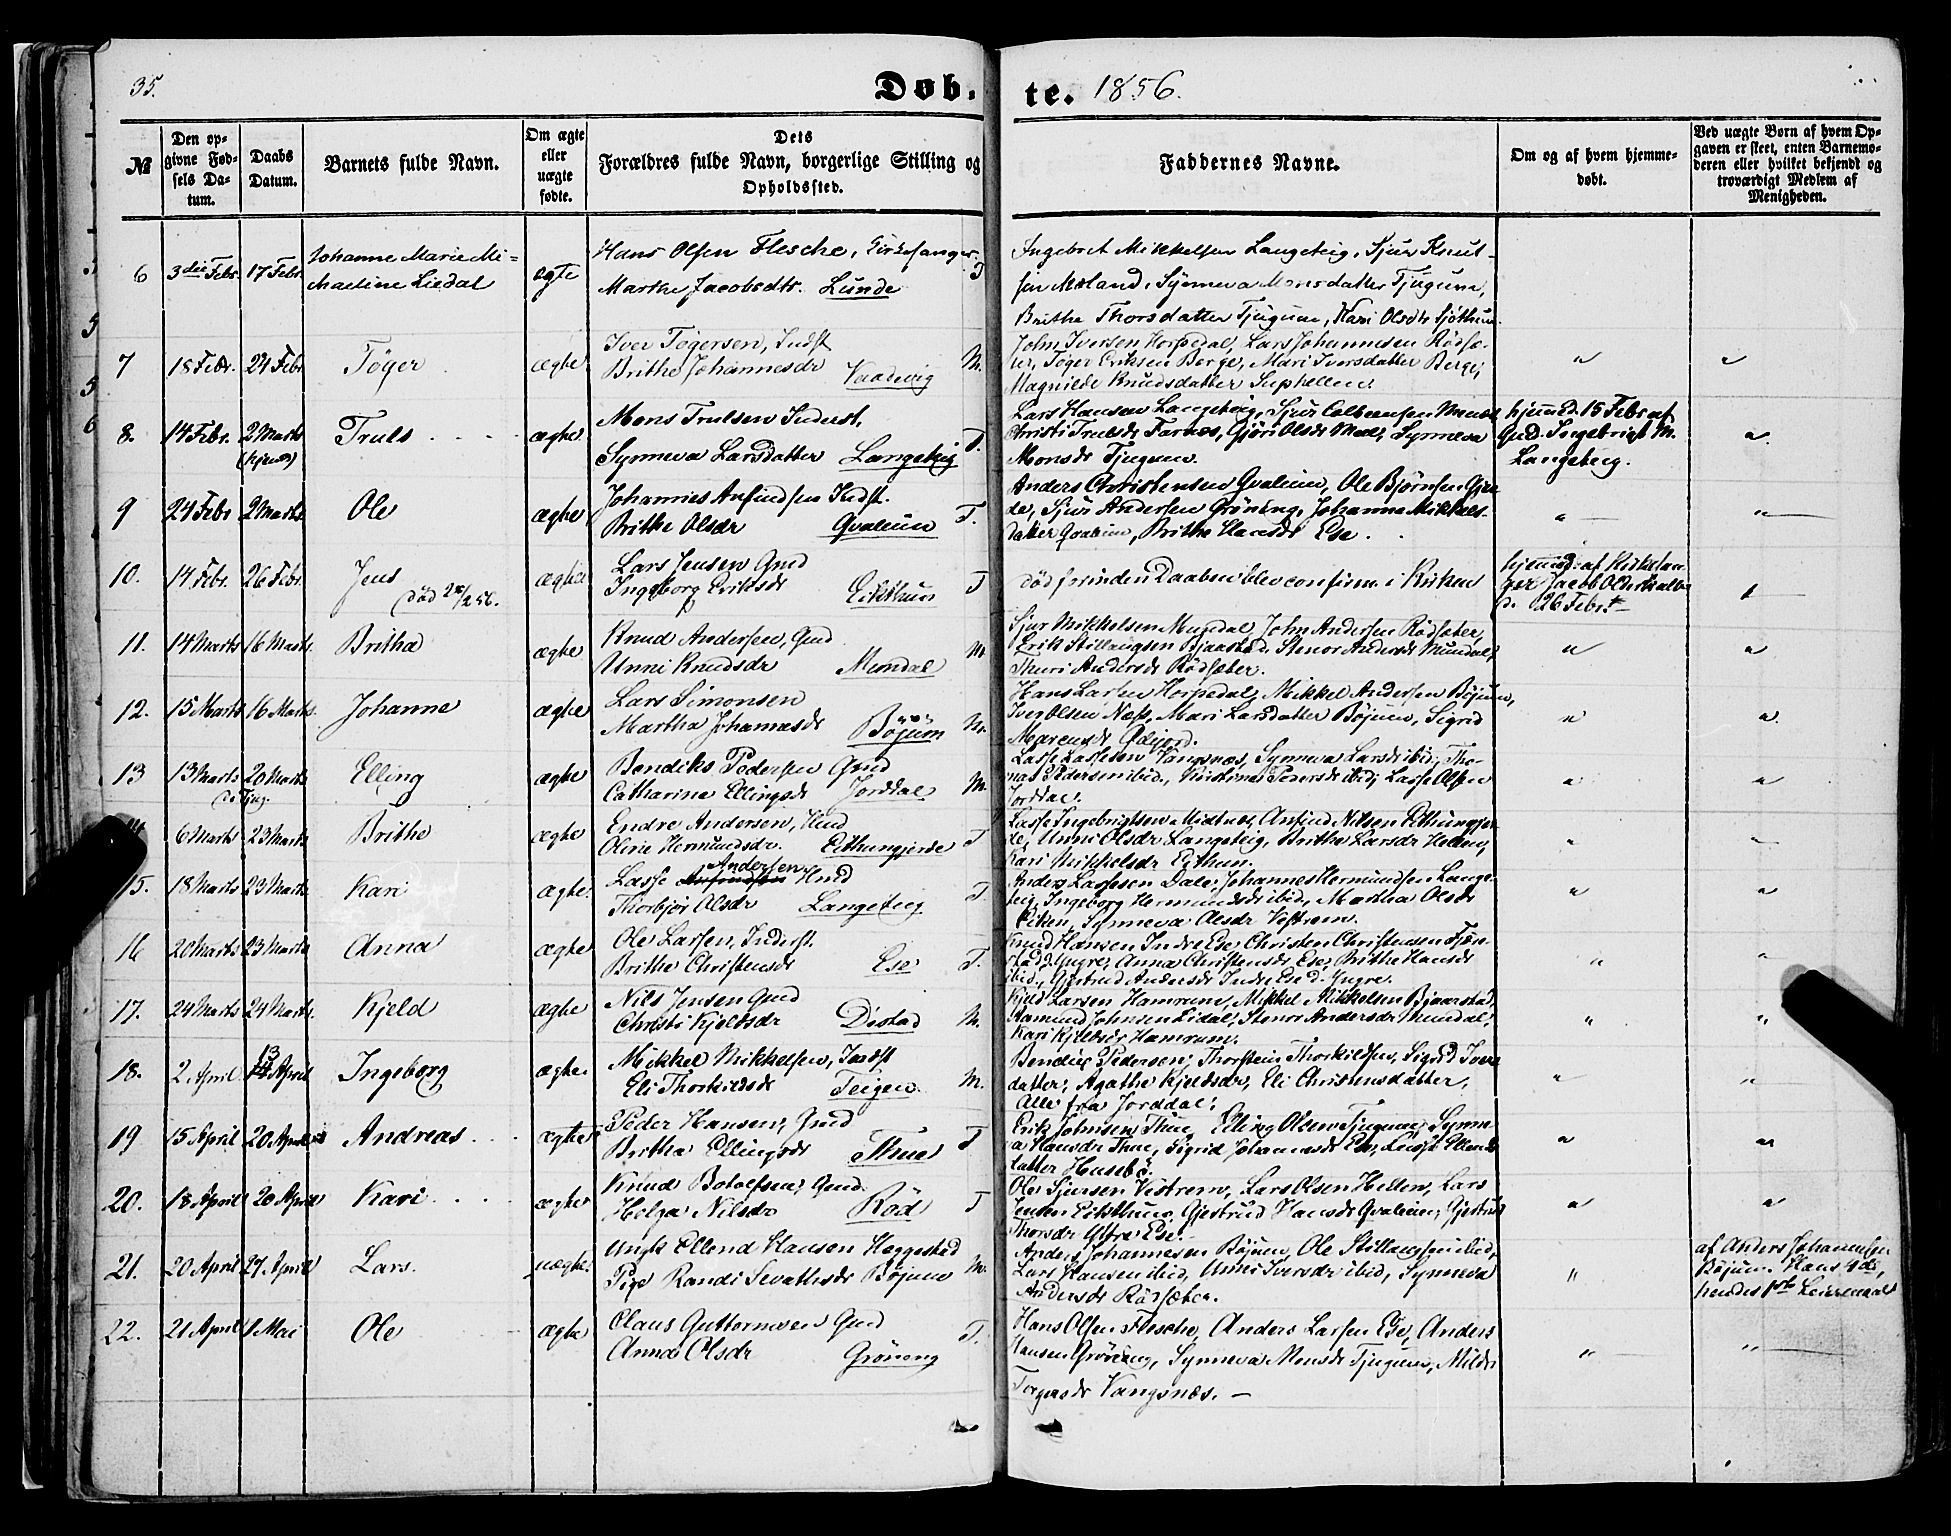 35.
Døb. te. 1856.
№
Den opgivne Fødsels Datum.
Daabs Datum.
Barnets fulde Navn.
Om ægte eller uægte fødte.
Dets Forældres fulde Navn, borgerlige Stilling og Opholdssted.
Faddernes Navne.
Om og af hvem hjemmedøbt.
Ved uægte Børn af hvem Opgaven er skeet, enten Barnemoderen eller hvilket bekjendt og troværdigt Medlem af Menigheden.
6 3die Febr. 17 Febr. Johanne Marie Mi=
Martine Liedal ægte
Hans Olsen Flesche, Kirkesanger
Marthe Jacobsdtr. Lunde T
Ingebret Mikkelsen Langeteig, Sjur Knut-
sen Mæland, Synneva Monsdatter Tjugum,
Brithe Thorsdatter Tjugum, Kari Olsdtr Sjøthun
7 18 Febr. 24 Febr. Tøger ægte
Iver Tøgersen, Indst
Brithe Johannesdr Vaadvig M.
John Iversen Horpedal, Lars Johannesen Rødsæ-
ter, Tøger Eriksen Berge, Mari Iversdatter Berge,
Magnilde Knudsdatter Suphellen.
8. 14 Febr. 2 Marts (hjemd) Truls ægte
Mons Trulsen Inderst,
Synneva Larsdatter Langeteig T.
Lars Hansen Langeteig, Sjur Colbeensen
Christi Trulsdr Farnæs, Gjøri Olsdr Mæl, Synneva
Monsdr Tjugum.
hjemd. 15 Febr af
Gmd. Ingebrigt M.
Langeteig.
9 24 Febr 2 Marts Ole ægte
Johannes Anfindsen Indst.
Brithe Olsdr Qvalum T.
Anders Christensen Qvalum, Ole Bjørnsen Gjer-
de, Sjur Andersen Grøning, Johanne Mikkels-
datter Qvalum, Brithe Hansdr Ese.
10. 14 Febr. 26 Febr. Jens ægte
død 28/2 56.
Lars Jensen Gmd
Ingeborg Eriksdr Eikthun T
død forinden Daaben blev confirm. i Kirken
hjemd. af Kirkesan-
ger Jacob
d. 26 Febr.
11. 14 Marts 16 Marts Britha ægte
Knud Andersen, Gmd
Unni Knudsdr Mundal M
Sjur Mikkelsen Mundal, John Andersen Rødsæter,
Erik Stillaugsen Bjaastad, Stenor Andersdr Mundal,
Thuri Andersdr Rødsæter.
12. 15 Marts 16 Marts. Johanne ægte
Lars Simonsen
Martha Johannesdr Bøjum M.
Hans Larsen Horpedal, Mikkel Andersen Bøjum,
Iver Olsen Næss, Mari Larsdatter Bøjum, Sigrid
13 13 Marts 20 Marts Elling ægte
Bendiks Pedersen Gmd
Catharina Ellingsdr Jorddal M.
Lasse Lassesen Vangsnæs, Synneva Larsdr ibid, Tho-
mas Pedersen ibid., Kistine Pedersdr ibid, Lasse Olsen
Jorddal.
6 Marts 23 Marts Brithe ægte
Endre Andersen, Hmd
Oline Hermundsdr. Eithungjerde T
Lasse Ingebrigtsen Midtnes, Anfind Nilsen Eithungjer-
de, Unni Olsdr Langeteig, Brithe Larsdr Hellen,
Kari Mikkelsdr Eithun.
15. 18 Marts 23 Marts Kari ægte.
Lasse Andersen Hmd
Thorbjør Olsdr Langeteig T.
Anders Lassesen Dale, Johannes Hermundsen Lange-
teig, Ingeborg Hermundsdr ibid, Martha Olsdr
Eiken, Synneva Olsdr Vestrem.
16 20 Marts 23 Marts Anna ægte
Ole Larsen, Inderst.
Brithe Christensdr Ese T.
Knud Hansen Indre Ese, Christen Christensen Fjær-
stad d. yngre, Anna Christensdr Ese, Brithe Hansdr
ibid, Gjertrud Andersdr Indre Ese d. Yngre.
17. 24 Marts 24 Marts. Kjeld ægte
Nils Jensen Gmd
Christi Kjeldsdr Distad M.
Kjeld Larsen Hamrum, Mikkel Mikkelsen Bjaastad,
Aamund Johnsen Lidal, Stenor Andersdr Mundal,
Kari Kjeldsdr Hamrum.
18. 2 April 13 April Ingeborg ægte.
Mikkel Mikkelsen, Indst
Eli Thorkildsdr Teigen M.
Bendix Pedersen, Thorstein Thorkildsen, Sigrid Ivers-
datter, Agathe Kjeldsdr, Eli Christensdatter,
Alle fra Jorddal.
19 15 April 20 April Andreas ægte
Peder Hansen, Gmd
Britha Ellingsdr Thue T
Erik Johnsen Thue, Elling Olsen Tjugum, Synne-
va Hansdr Thue, Sigrid Johannesdr Ese,
datter Husebø.
20. 18 April 20 April Kari ægte
Knud Botolfsen, Gmd.
Helga Nilsdr Röd T
Ole Sjursen Vestrem, Lars Olsen Hellen, Lars
Jensen Eikthun, Gjertrud Hansdr Qvalum, Gjertrud
Thorsdr Yttre Ese.
21. 20 April 27 April Lars. uægte.
Ungk Ellend Hansen Heggestad
Pige Randi Sevathsdr Bøjum M.
Anders Johannesen Bøjum, Ole Stillaugsen ibid,
Lars Hansen ibid, Unni Iversdr ibid, Synneva
Andersdr Rødsæter.
af Anders Johannesen
Bøjum. Hans 4de,
hendes 1ste Leiermaal
22. 21 April 1 Mai Ole ægte
Claus Guttormsen Gmd
Anna Olsdr Grøneng T.
Hans Olsen Flesche, Anders Larsen Ese, Anders
Hansen Grøneng, Synneva Monsdr Tjugum, Milde
Torgersdr Vangsnæs. —